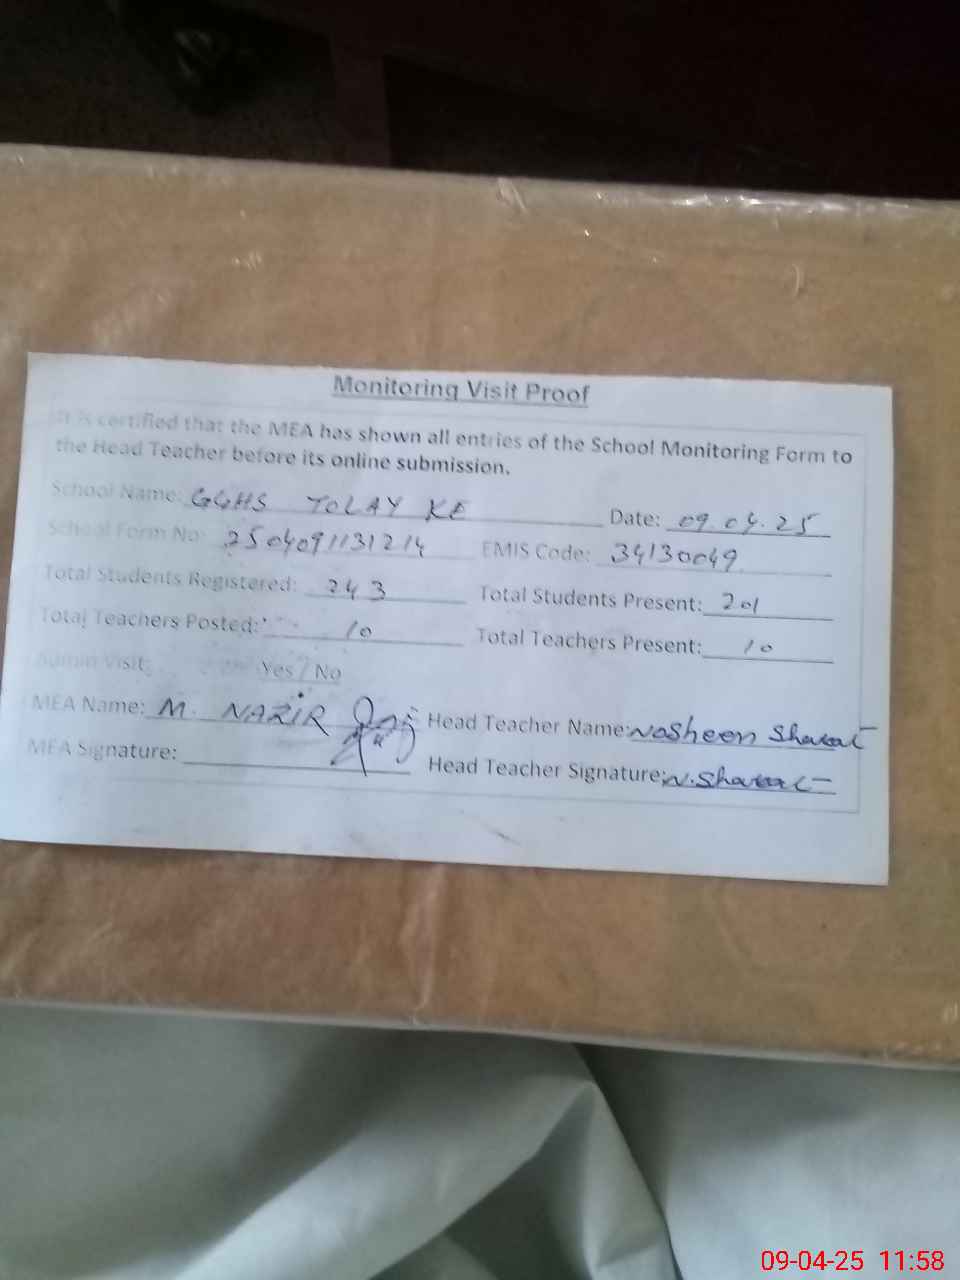 Monitoring Visit Proof
It is certified that the MEA has shown all entries of the School Monitoring Form to
the Head Teacher before its online submission.
School Name: GGHS TOLAY KE Date: 09.04.25
School Form No: 2504091131214 EMIS Code: 34130049
Total Students Registered: 243 Total Students Present: 201
Total Teachers Posted: 10 Total Teachers Present: 10
Admin Visit: Yes / No
MEA Name: M. NAZIR Head Teacher Name: Nosheen Sharafat
MEA Signature: Head Teacher Signature:
09-04-25 11:58